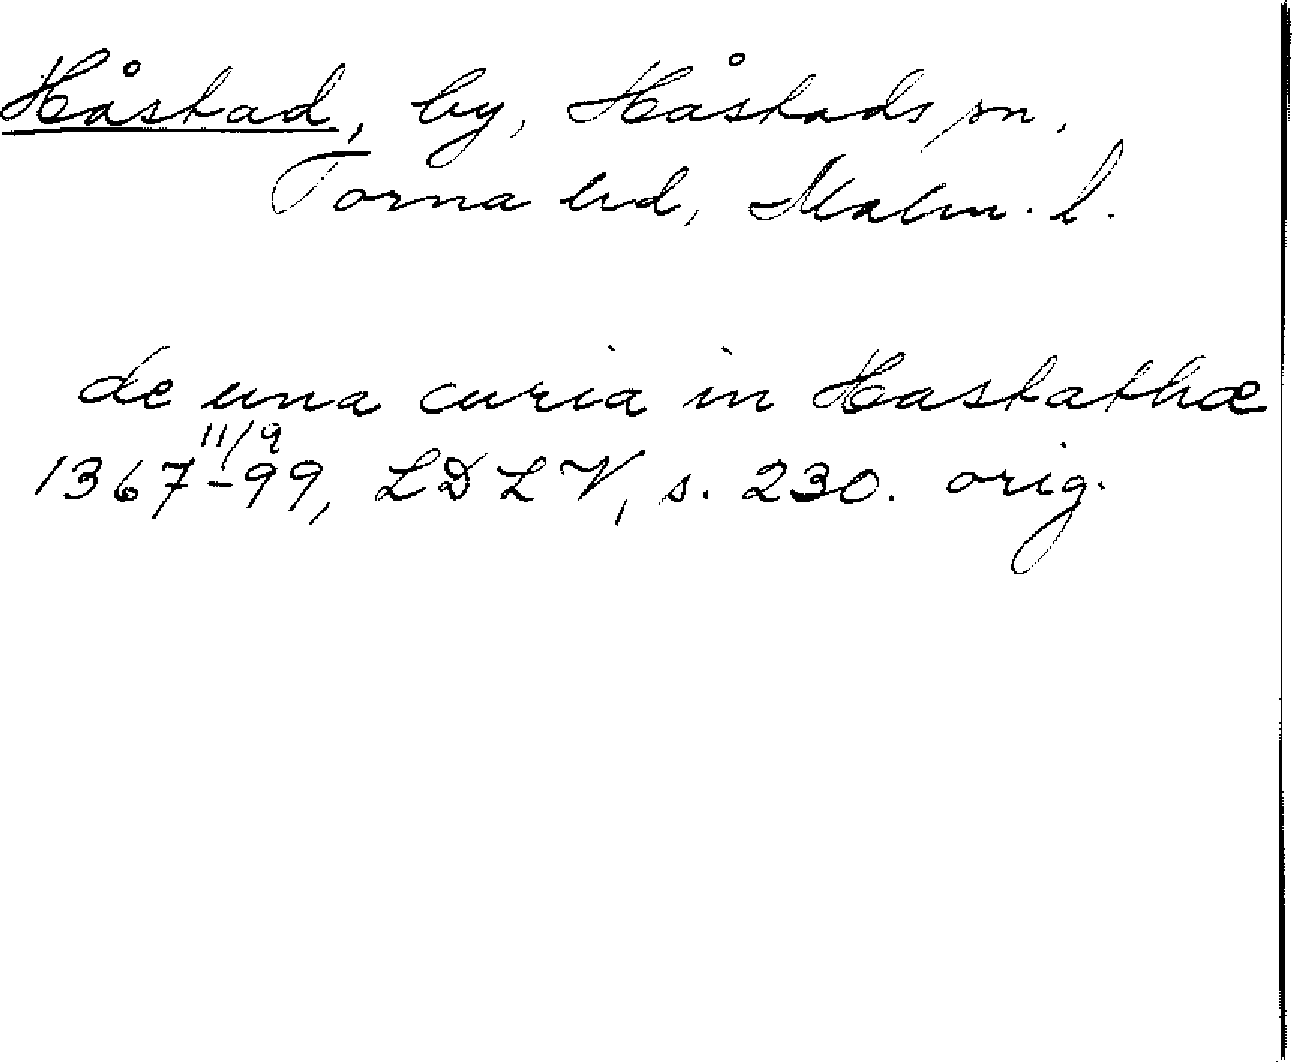 Håstad, by, Håstads sn.
Torna hd, Malm. l.
de una curia in Hastathæ
11/9
1367-99, LDLV, s. 230. orig.